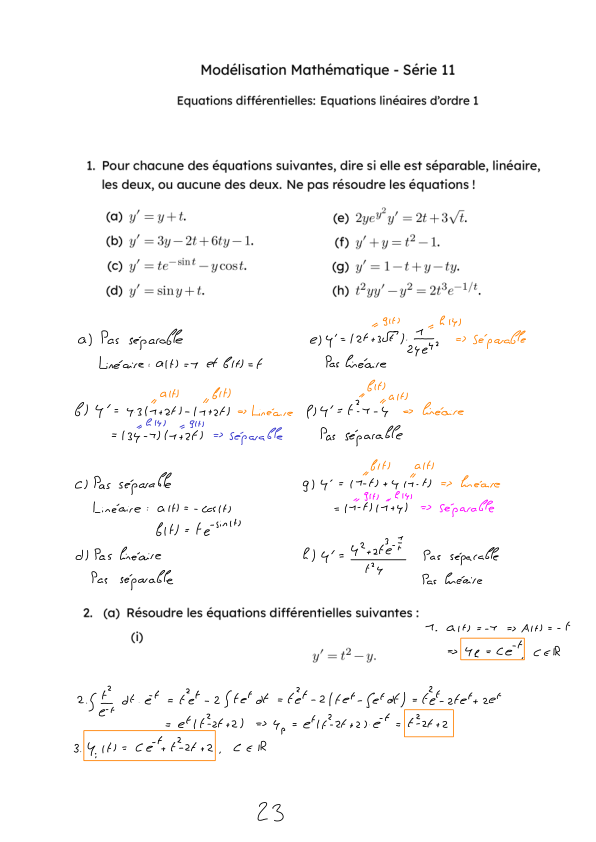 Modélisation Mathématique - Série 11
Equations différentielles: Equations linéaires d'ordre 1
1. Pour chacune des équations suivantes, dire si elle est séparable, linéaire,
les deux, ou aucune des deux. Ne pas résoudre les équations !
(a) y′ = y + t.
(b) y′ = 3y − 2t + 6ty − 1.
(c) y′ = te^{−sin t} − y cos t.
(d) y′ = sin y + t.
(e) 2ye^{y²}y′ = 2t + 3√t.
(f) y′ + y = t² − 1.
(g) y′ = 1 − t + y − ty.
(h) t²yy′ − y² = 2t³e^{−1/t}.
a) Pas séparable
Linéaire : a(t) = 1 et b(t) = t
"g(t) "h(y)
e) y' = (2t + 3√t) · 1/(2ye^{y²}) => séparable
Pas linéaire
"a(t) "b(t)
b) y' = y3(1+2t) - (1+2t) => Linéaire
"h(y) "g(t)
= (3y - 1)(1+2t) => séparable
"b(t) "a(t)
f) y' = t² - 1 - y => linéaire
Pas séparable
c) Pas séparable
Linéaire : a(t) = - cos(t)
b(t) = te^{-sin(t)}
"b(t) a(t)
g) y' = (1-t) + y(1-t) => linéaire
"g(t) "h(y)
= (1-t)(1+y) => séparable
d) Pas linéaire
Pas séparable
h) y' = (y² + 2t³e^{-1/t})/(t²y) Pas séparable
Pas linéaire
2. (a) Résoudre les équations différentielles suivantes :
(i)
y′ = t² − y.
1. a(t) = -1 => A(t) = -t
=> yₕ = Ce^{-t}, C ∈ ℝ
2. ∫ t²/e^{-t} dt e^{-t} = t²e^t - 2∫te^t dt = t²e^t - 2(te^t - ∫e^t dt) = t²e^t - 2te^t + 2e^t
= e^t(t² - 2t + 2) => yₚ = e^t(t² - 2t + 2) e^{-t} = t² - 2t + 2
3. y(t) = Ce^{-t} + t² - 2t + 2, C ∈ ℝ
23